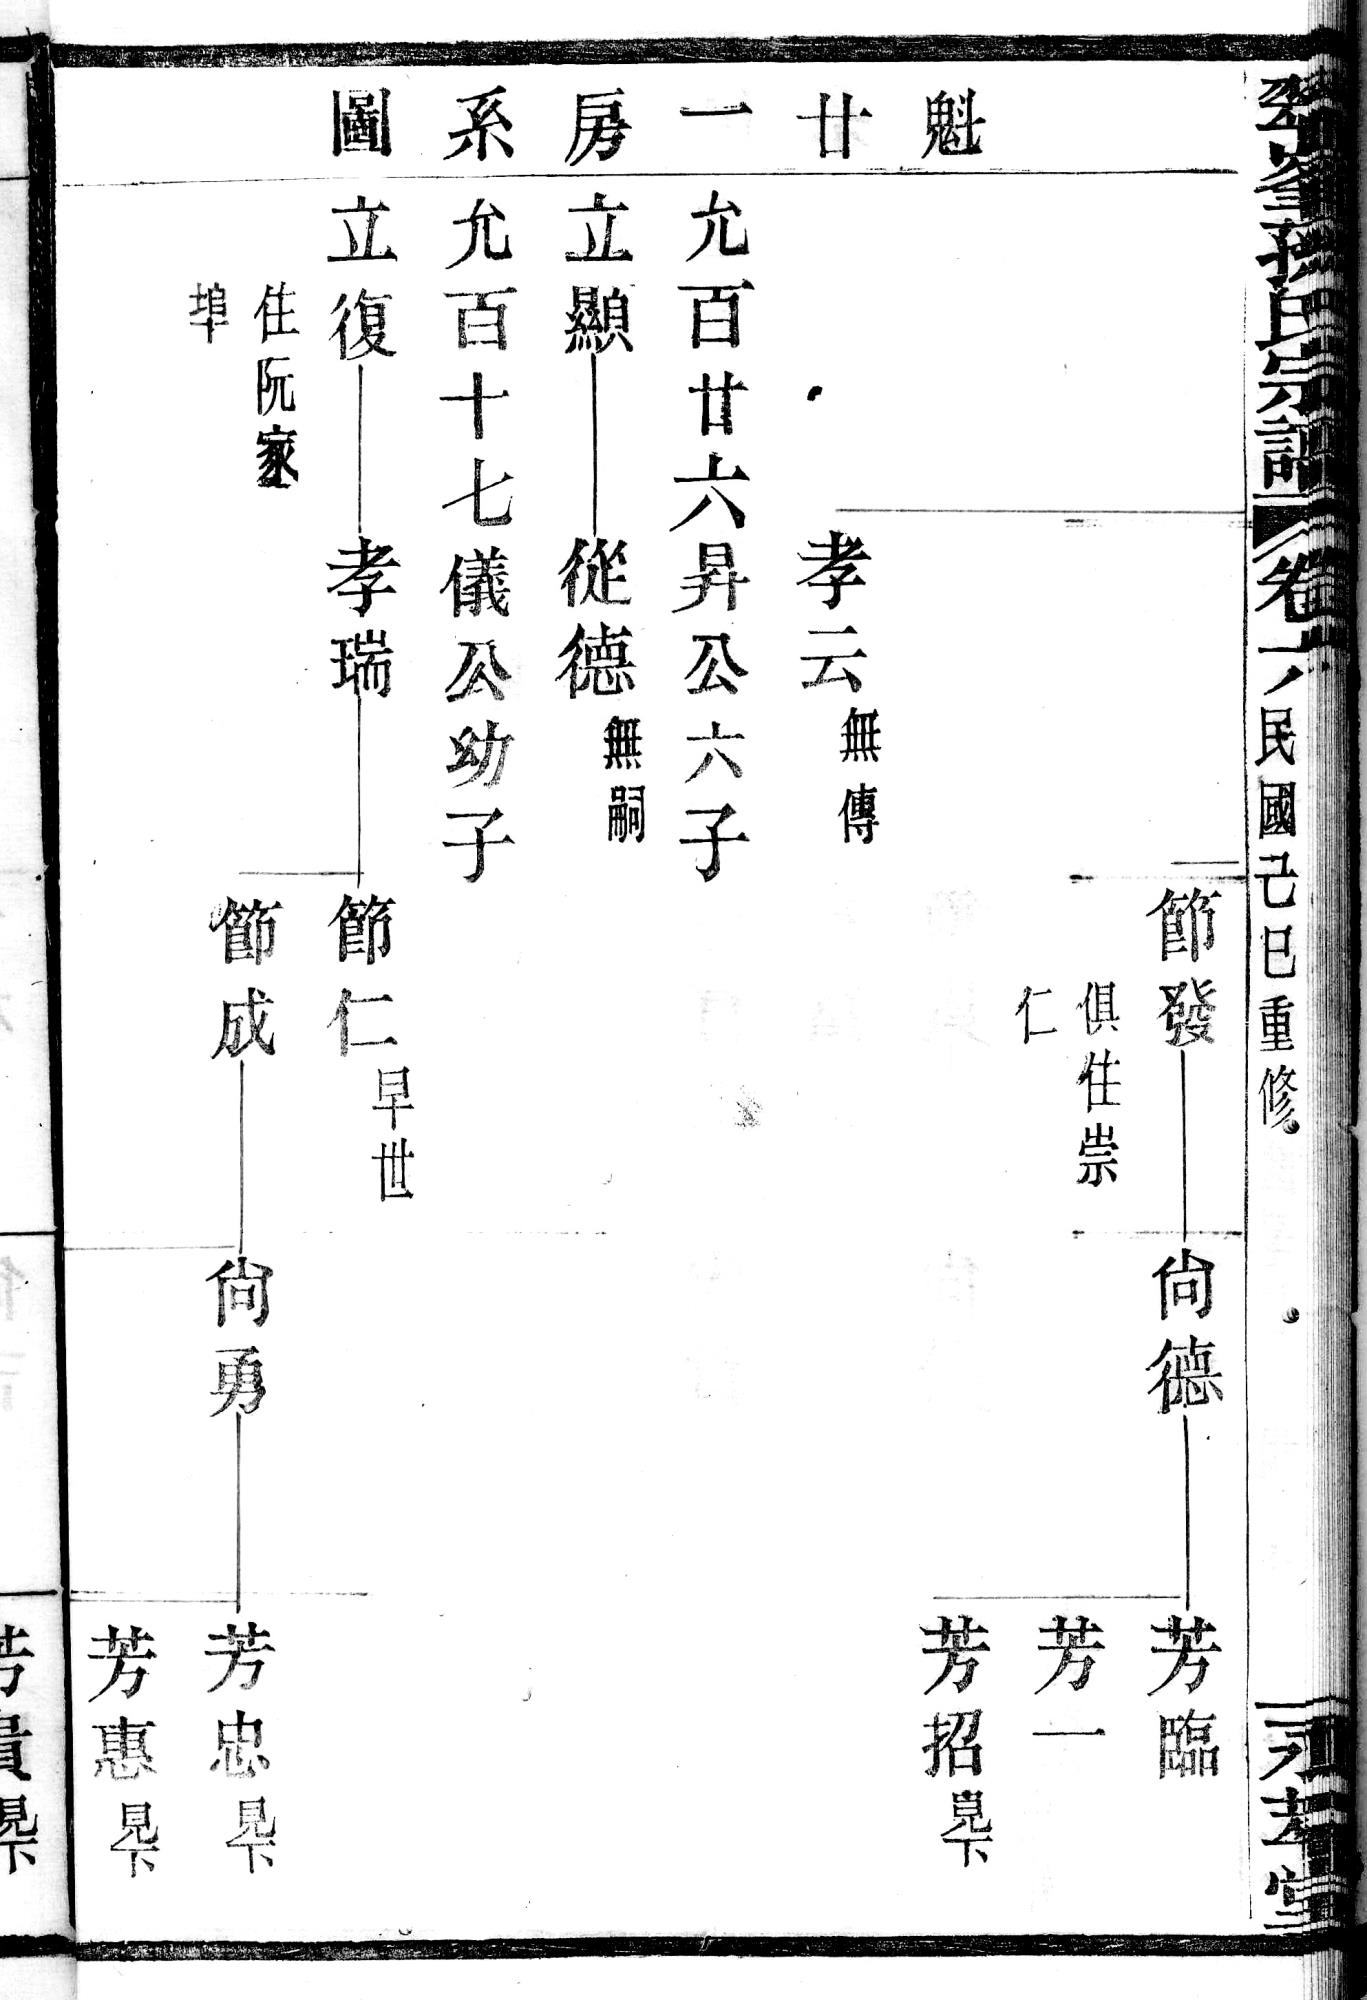 孫氏宗譜 卷六 民國己巳重修
魁廿一房系圖
節發
俱住崇
仁
尙德
芳臨
芳一
芳招 見下
孝云 無傳
允百廿六昇公六子
立顯
從德 無嗣
允百十七儀公幼子
立復
住阮家
埠
孝瑞
節仁 早世
節成
尙勇
芳忠 見下
芳惠 見下
見下